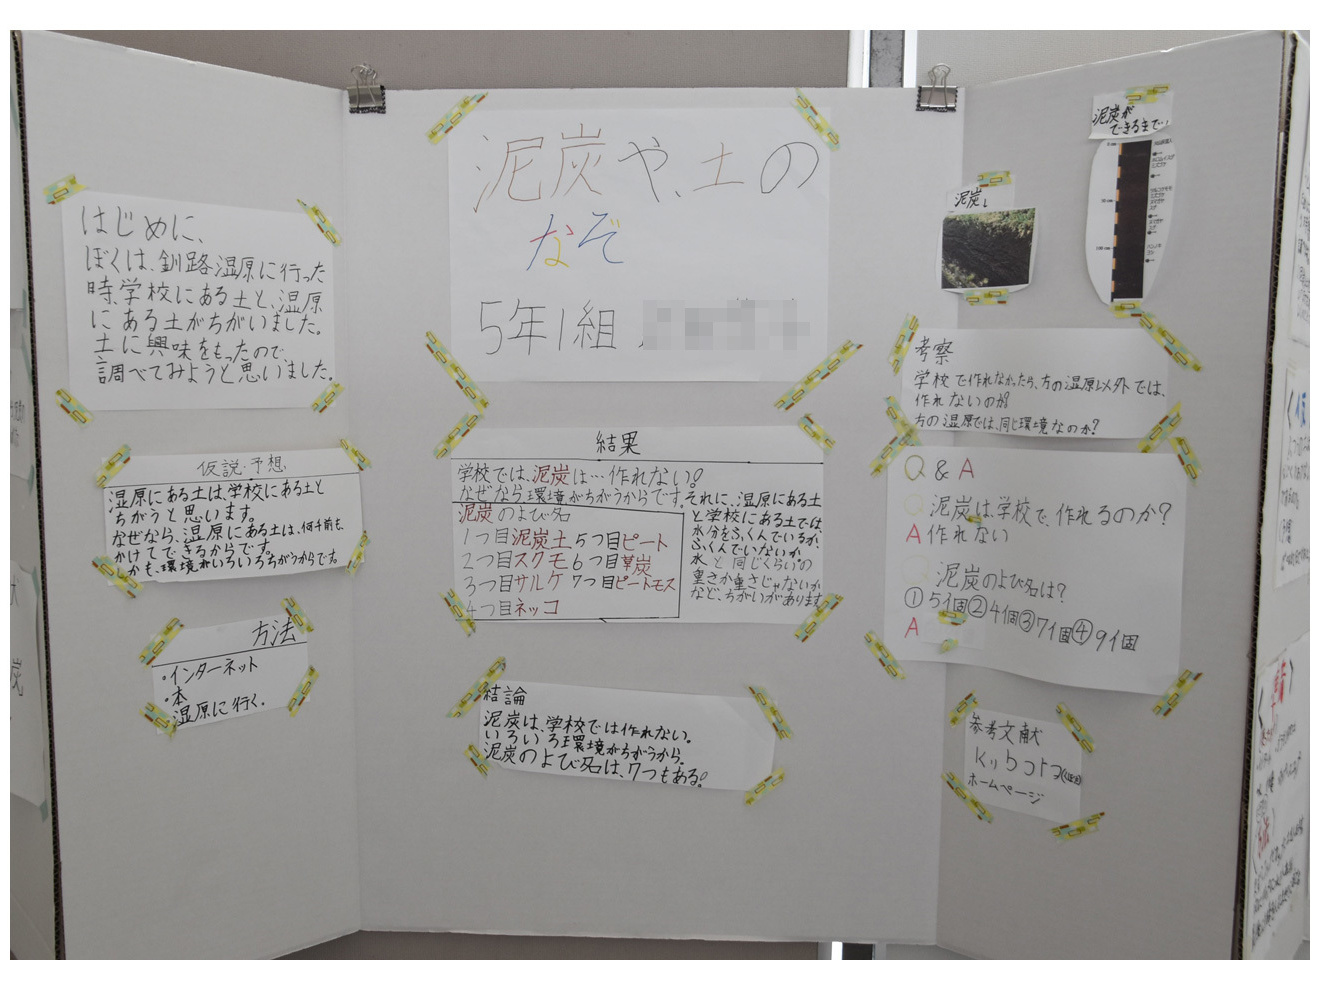 はじめに、
ぼくは、釧路湿原に行った
時、学校にある土と、湿原
にある土がちがいました。
土に興味をもったので、
調べてみようと思いました。
仮説・予想
湿原にある土は、学校にある土と
ちがうと思います。
なぜなら、湿原にある土は、何千前も、
かけてできるからです。
しかも、環境がいろいろちがうからです。
方法
・インターネット
・本
・湿原に行く.
泥炭や、土の
なぞ
5年1組
結果
学校では、泥炭は…作れない!
なぜなら、環境がちがうからです。それに、湿原にある土
と学校にある土では、
水分をふくんでいるか、
ふくんでいないか
水と同じくらいの
重さか重さじゃないか
など、ちがいがあります
泥炭のよび名
1つ目泥炭土 5つ目ピート
2つ目スクモ 6つ目草炭
3つ目サルケ 7つ目ピートモス
4つ目ネッコ
結論
泥炭は、学校では作れない。
いろいろ環境がちがうから。
泥炭のよび名は、7つもある!
泥炭が
できるまで
泥炭
考察
学校で作れなかったら、方の湿原以外では、
作れないのか?
方の湿原では、同じ環境なのか?
Q & A
Q 泥炭は、学校で、作れるのか?
A 作れない
Q 泥炭のよび名は?
①5個②4個③7個④9個
A
参考文献
ホームページ